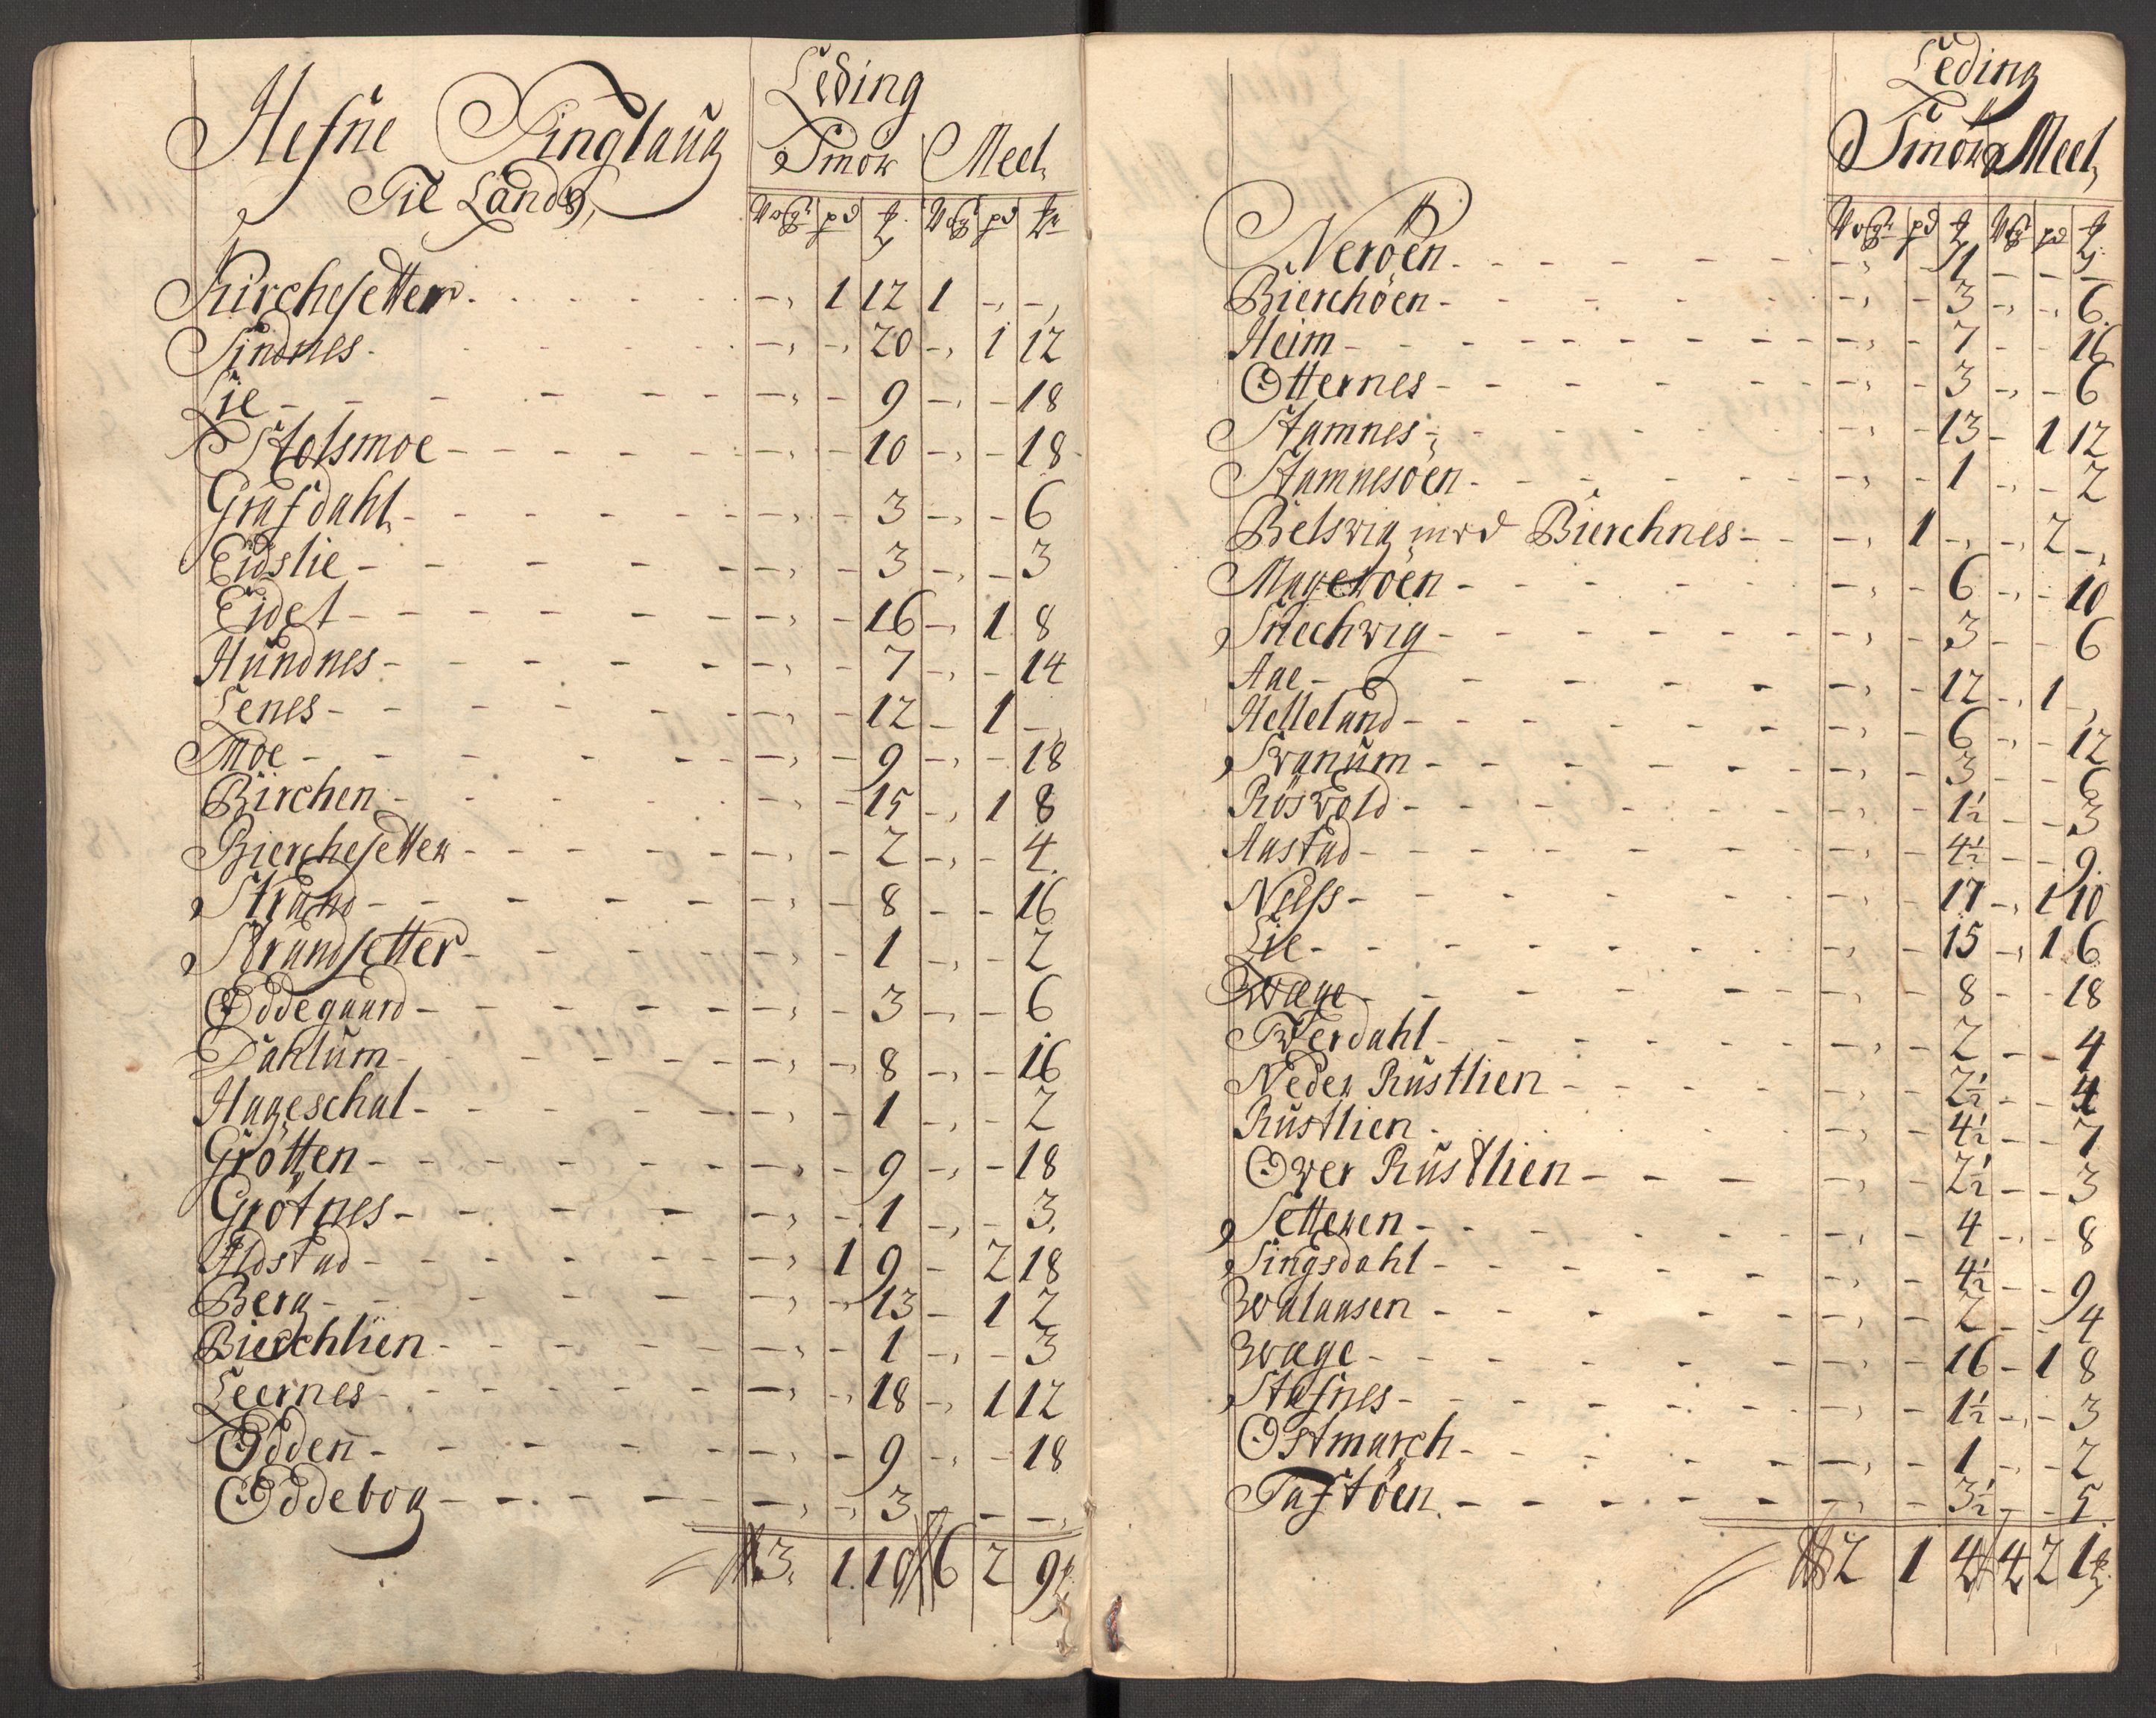 Hefne Tinglaug
Til Lands,
Leding
Smör Meel,
Wog pd ℔ Wog pd ℔
Kirchesetter - 1 12 1 - -
Sindnes - - 20 - 1 12
Lie - - 9 - - 18
Stolsmoe - - 10 - - 18
Grafdahl - - 3 - - 6
Eidslie - - 3 - - 3
Eidet - - 16 - 1 8
Hundnes - - 7 - - 14
Lenes - - 12 - 1 -
Moe - - 9 - - 18
Birchen - - 15 - 1 8
Bierchesetter - - 2 - - 4
Strand - - 8 - - 16
Strandsetter - - 1 - - 2
Oddegaard - - 3 - - 6
Dahlum - - 8 - - 16
Hageschal - - 1 - - 2
Grötten - - 9 - - 18
Grötnes - - 1 - - 3
Aldstad - 1 9 - 2 18
Berg - - 13 - 1 2
Bierchlien - - 1 - - 3
Leernes - - 18 - 1 12
Odden - - 9 - - 18
Oddebog - - 3 - - -
3 1 19 6 2 9 ℔
Leding
Smör Meel,
Wog pd ℔ Wog pd ℔
Neröen - - 1 - - -
Bierchöen - - 3 - - 6
Heim - - 7 - - 16
Otternes - - 3 - - 6
Stamnes - - 13 - 1 12
Stamnesöen - - 1 - - 2
Belsvig med Bierchnes - 1 - - 2 -
Mageröen - - 6 - - 10
Snechvig - - 3 - - 6
Aae - - 12 - 1 -
Helleland - - 6 - - 12
Svanum - - 3 - - 6
Rösvold - - 1½ - - 3
Aastad - - 4½ - - 9
Nelss - - 17 - 1 10
Lie - - 15 - 1 6
Waage - - 8 - - 18
Tverdahl - - 2 - - 4
Neder Rustlien - - 2½ - - 4
Rustlien - - 4½ - - 7
Over Rustlien - - 2½ - - 3
Setteren - - 4 - - 8
Singsdahl - - 4½ - - 9
Walaasen - - 2 - - 4
Waage - - 16 - 1 8
Stafnes - - 1½ - - 3
Ostmarch - - 1 - - 2
Taftöen - - 3½ - - 5
2 1 4 4 2 1 ℔